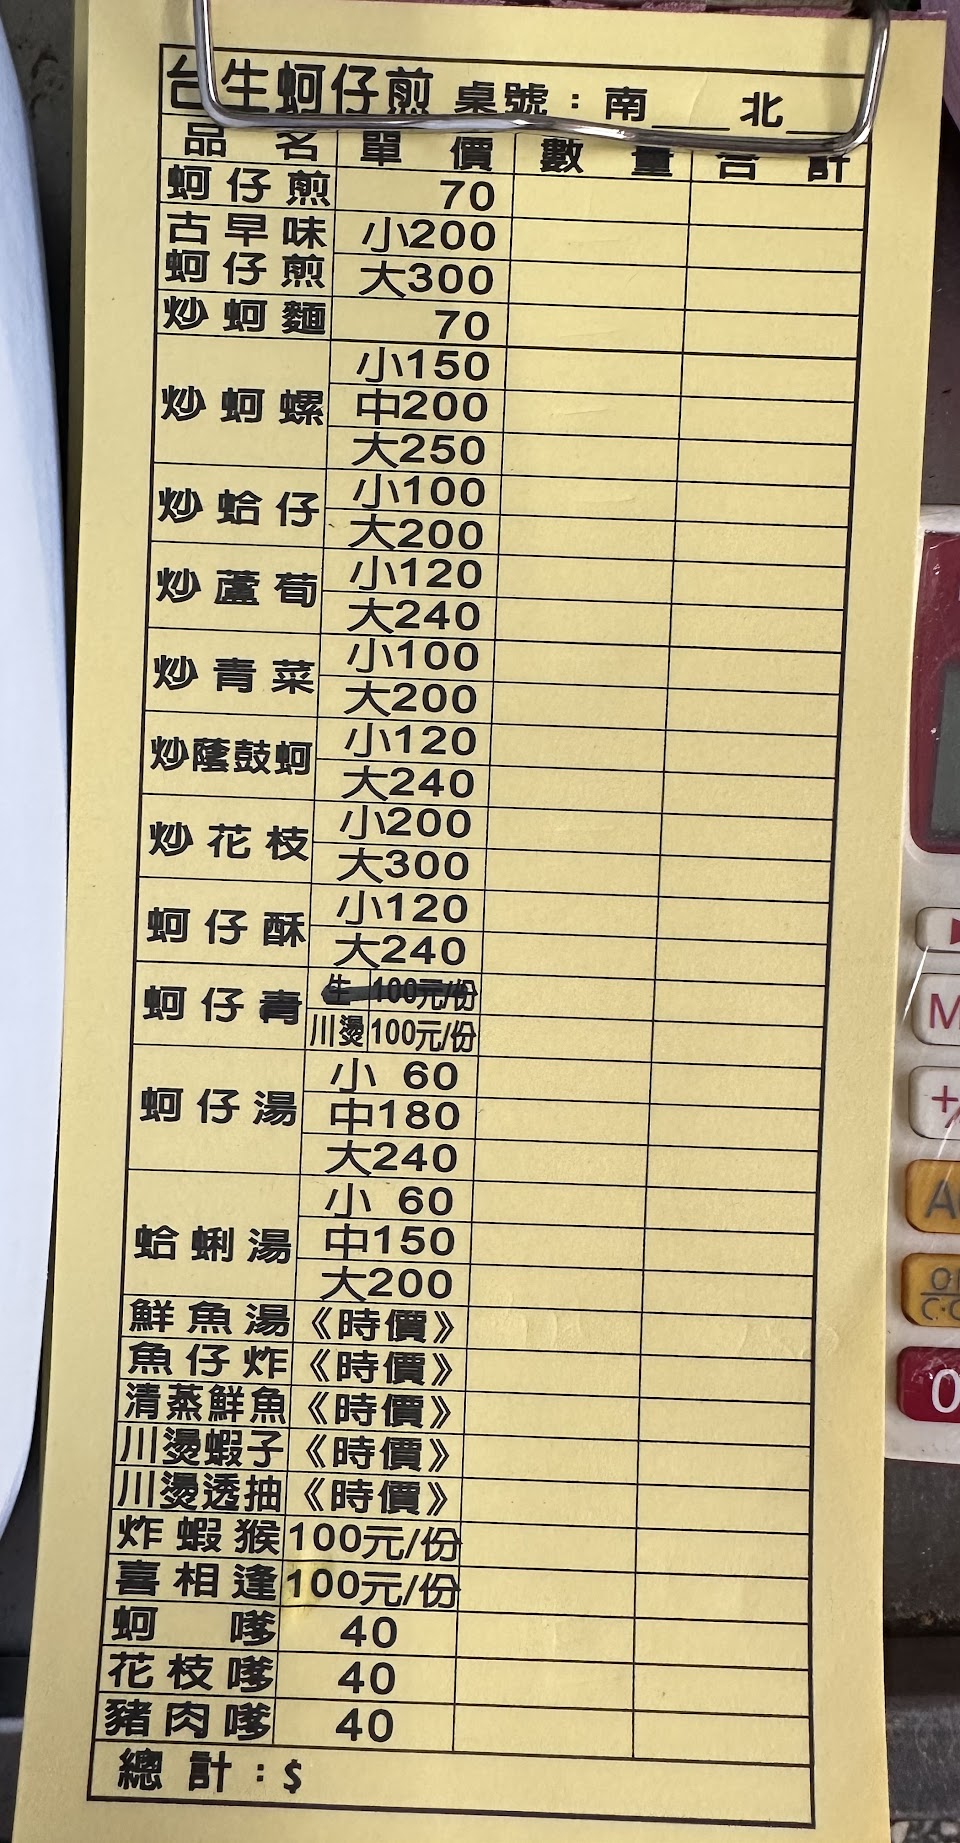 台生蚵仔煎 桌號：南___北___
品名 單價 數量 合計
蚵仔煎 70
古早味蚵仔煎 小200
大300
炒蚵麵 70
炒蚵螺 小150
中200
大250
炒蛤仔 小100
大200
炒蘆荀 小120
大240
炒青菜 小100
大200
炒蔭鼓蚵 小120
大240
炒花枝 小200
大300
蚵仔酥 小120
大240
蚵仔青 生 100元/份
川燙 100元/份
蚵仔湯 小 60
中180
大240
蛤蜊湯 小 60
中150
大200
鮮魚湯 《時價》
魚仔炸 《時價》
清蒸鮮魚 《時價》
川燙蝦子 《時價》
川燙透抽 《時價》
炸蝦猴 100元/份
喜相逢 100元/份
蚵嗲 40
花枝嗲 40
豬肉嗲 40
總計：$
0